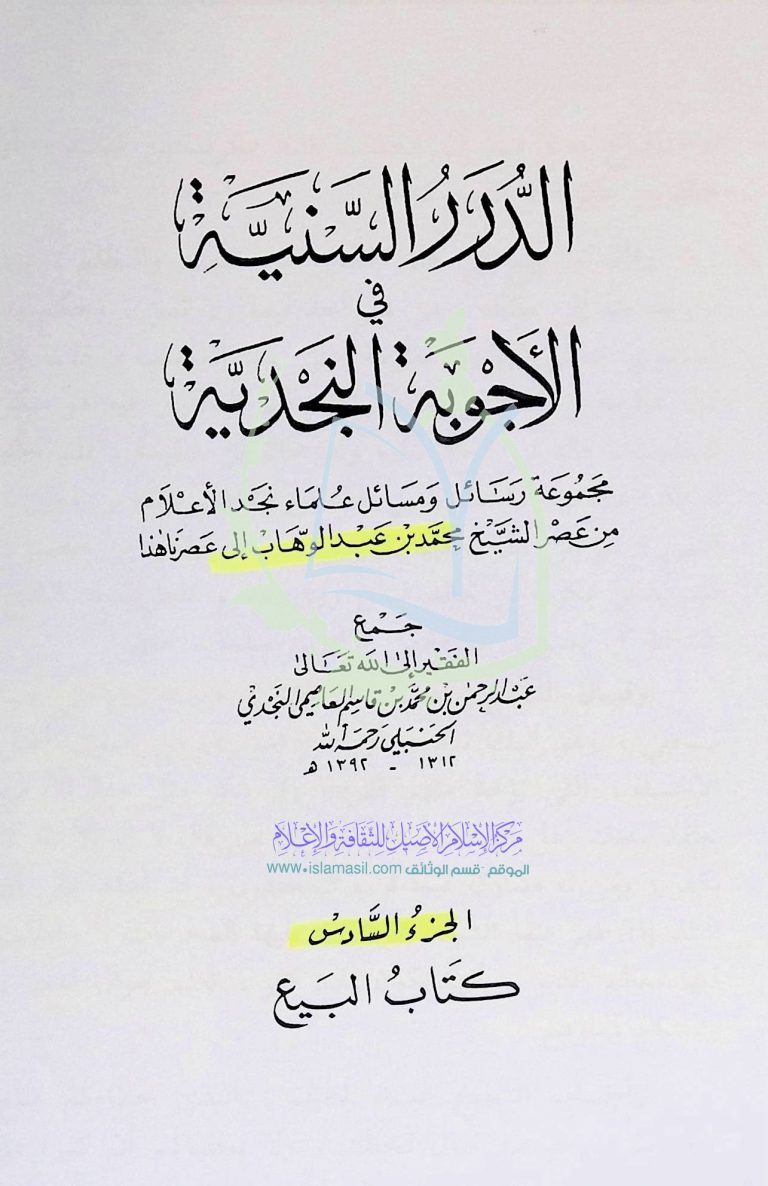 الدُّرَرُ السَّنِيَّة
في
الأَجْوِبَةِ النَّجْدِيَّة
مَجْمُوعَة رَسَائل وَمَسَائل عُلمَاء نجد الأعْلَام
مِن عَصْر الشَّيْخ محمَّد بن عَبْد الوهَّاب إلى عَصرنَا هٰذا
جَمع
الفَقير إلى الله تَعَالى
عَبْد الرحمٰن بن محمَّد بن قاسِم العَاصِمي النَّجْدي
الحَنبَلي رَحمَه الله
١٣١٢ - ١٣٩٢ هـ
مركز الإسلام الأصيل للثقافة والإعلام
الموقع - قسم الوثائق www.islamasil.com
الجزءُ السَّادسْ
كتَابُ البَيع